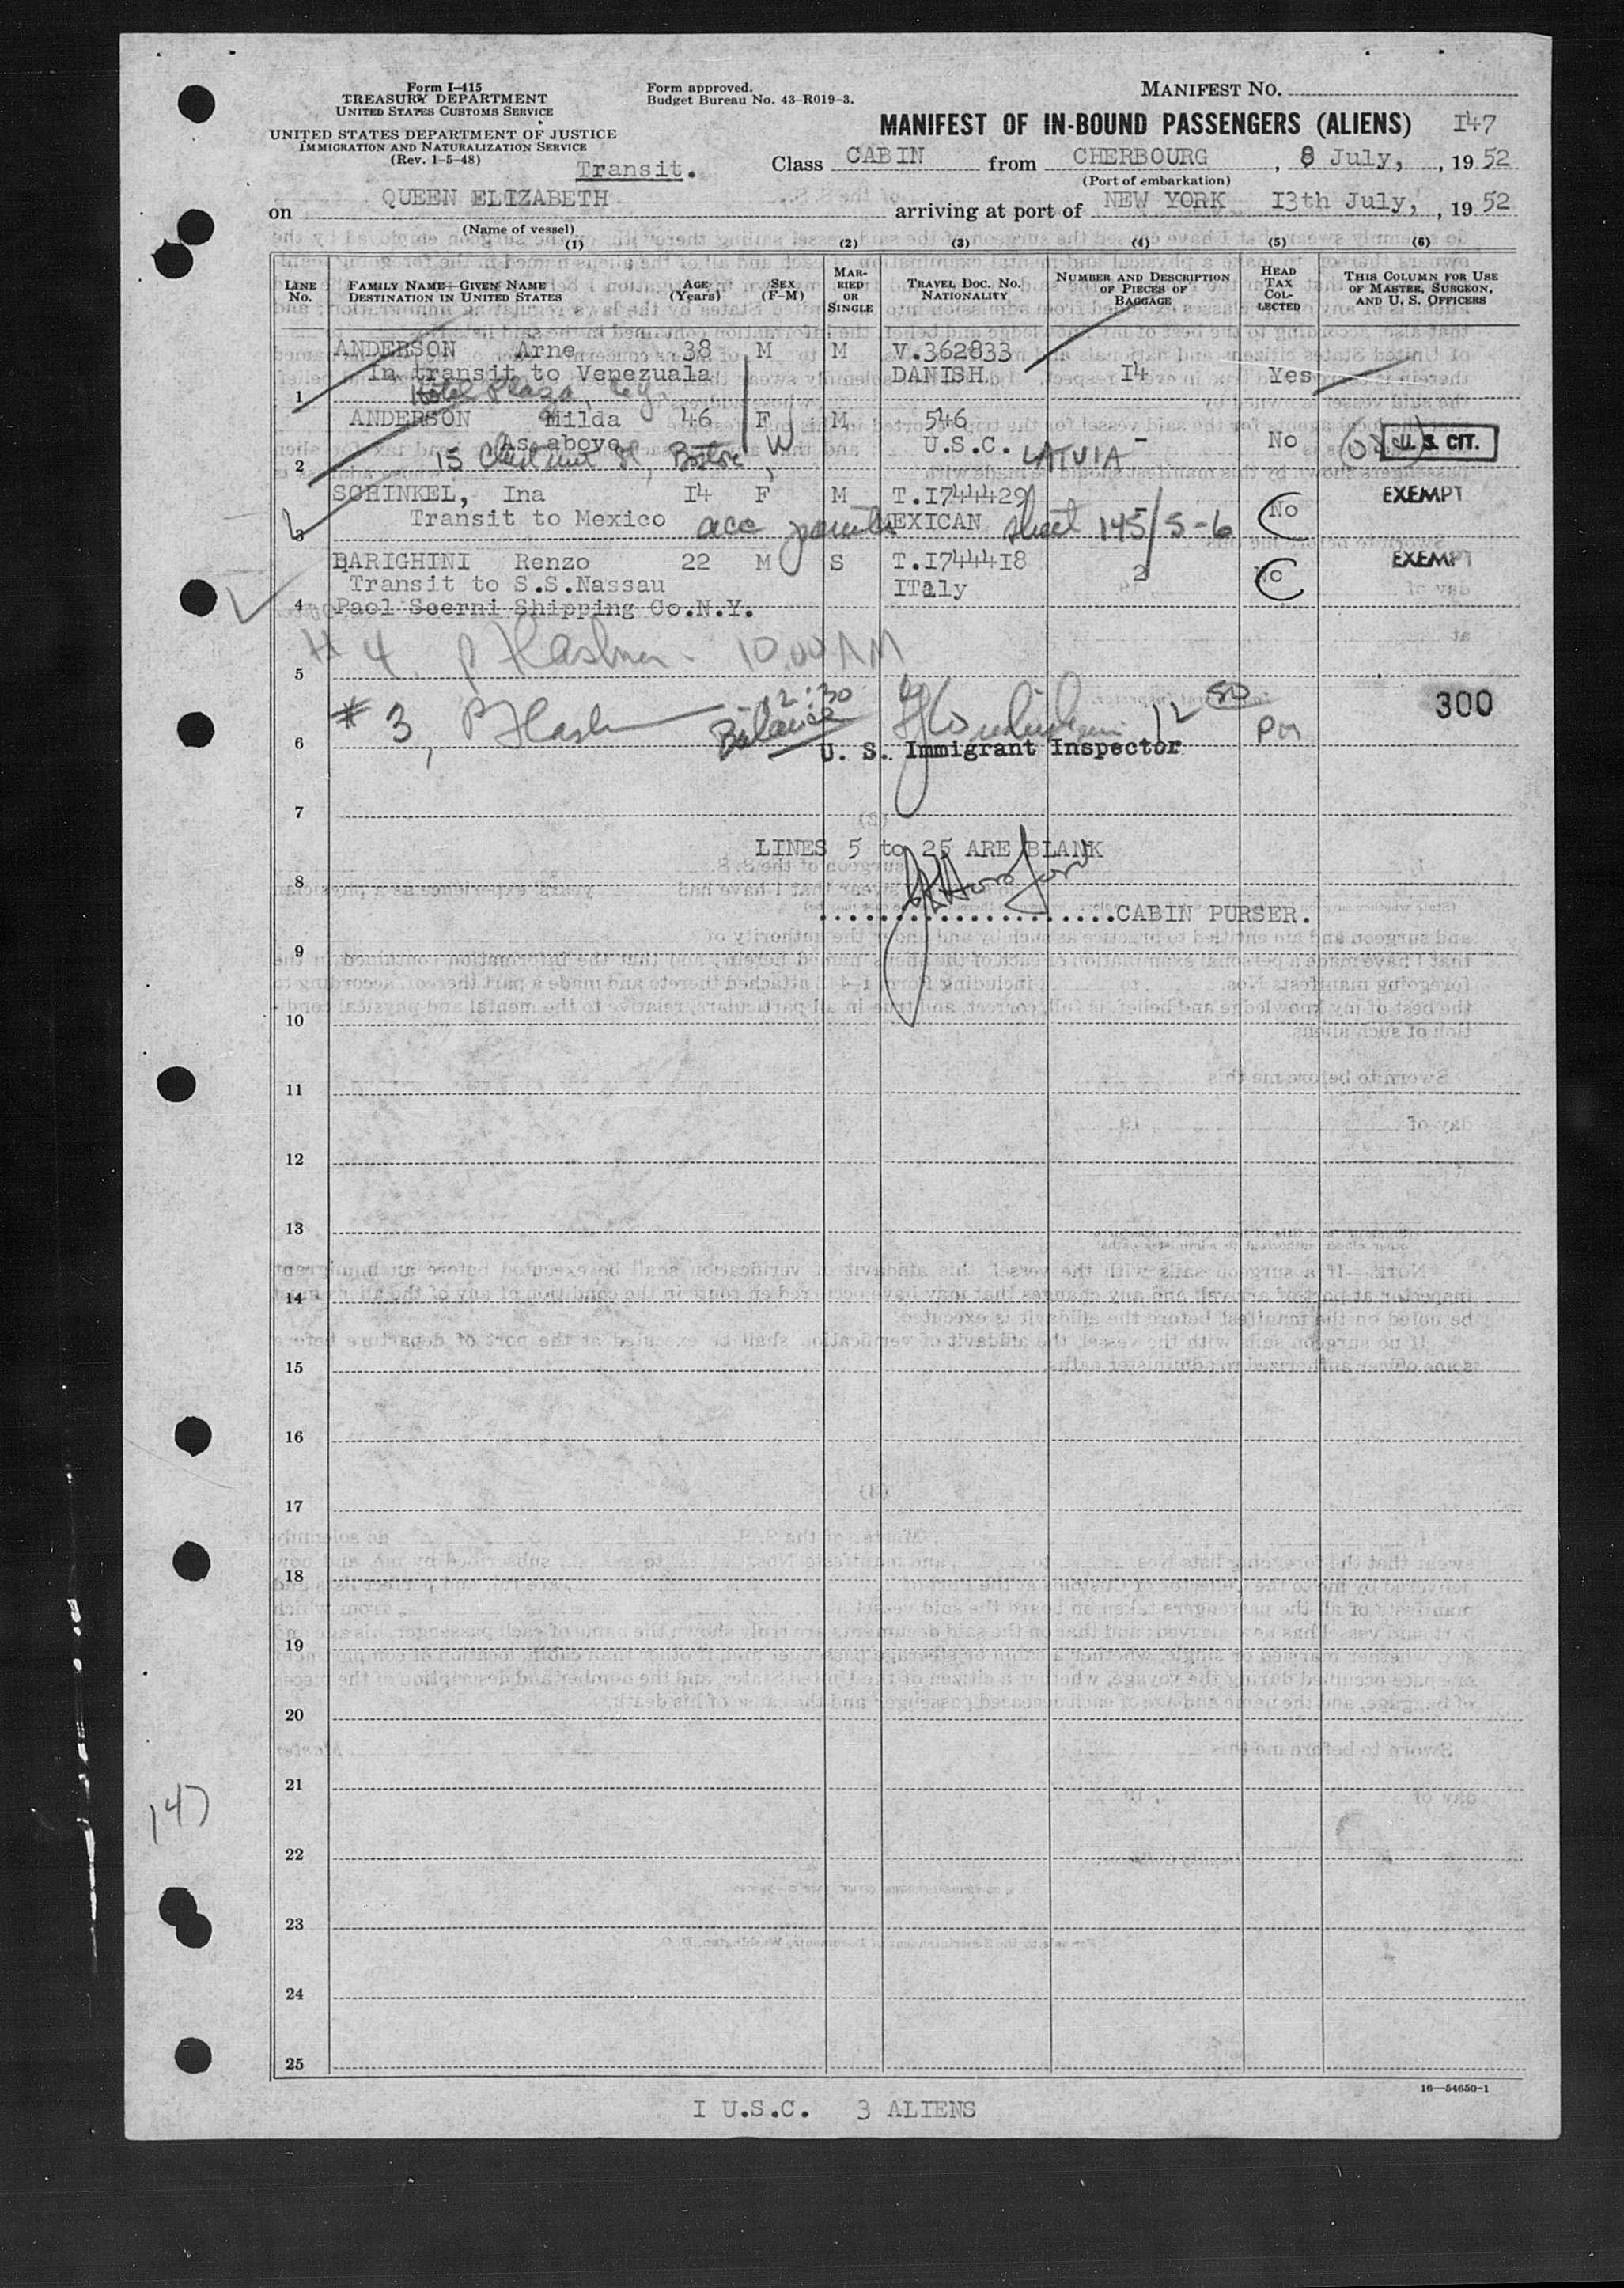 Form I-415
TREASURY DEPARTMENT
UNITED STATES CUSTOMS SERVICE
UNITED STATES DEPARTMENT OF JUSTICE
IMMIGRATION AND NATURALIZATION SERVICE
(Rev. 1-5-48)
Form approved.
Budget Bureau No. 43-R019-3.
MANIFEST NO.
MANIFEST OF IN-BOUND PASSENGERS (ALIENS) I47
Transit.
Class CABIN from CHERBOURG, 8 July, , 19 52
(Port of embarkation)
on QUEEN ELIZABETH arriving at port of NEW YORK I3th July, , 19 52
(Name of vessel)
(1) (2) (3) (4) (5) (6)
LINE No. FAMILY NAME—GIVEN NAME DESTINATION IN UNITED STATES AGE (Years) SEX (F-M) MARRIED OR SINGLE TRAVEL DOC. NO. NATIONALITY NUMBER AND DESCRIPTION OF PIECES OF BAGGAGE HEAD TAX COLLECTED THIS COLUMN FOR USE OF MASTER, SURGEON, AND U. S. OFFICERS
ANDERSON Arne 38 M M V.362833
In transit to Venezuala DANISH I4 Yes
1 Hotel Plaza
ANDERSON Milda 46 F M 546
As above W U.S.C. LATVIA - No U. S. CIT.
2 15 Chestnut St, Boston
SCHINKEL, Ina I4 F M T.I744429 EXEMPT
Transit to Mexico acc parents MEXICAN sheet 145/5-6 No
3
BARIGHINI Renzo 22 M S T.I7444I8 EXEMPT
Transit to S.S.Nassau ITaly 2 No
4 Paol Scerni Shipping Co.N.Y.
# 4. 10.00 AM
5
# 3, 12:30 Balance 12 50 PM 300
6 U. S. Immigrant Inspector
7
LINES 5 to 25 ARE BLANK
8
CABIN PURSER.
9
10
11
12
13
14
15
16
17
18
19
20
21
147
22
23
24
25
16—54650-1
I U.S.C. 3 ALIENS